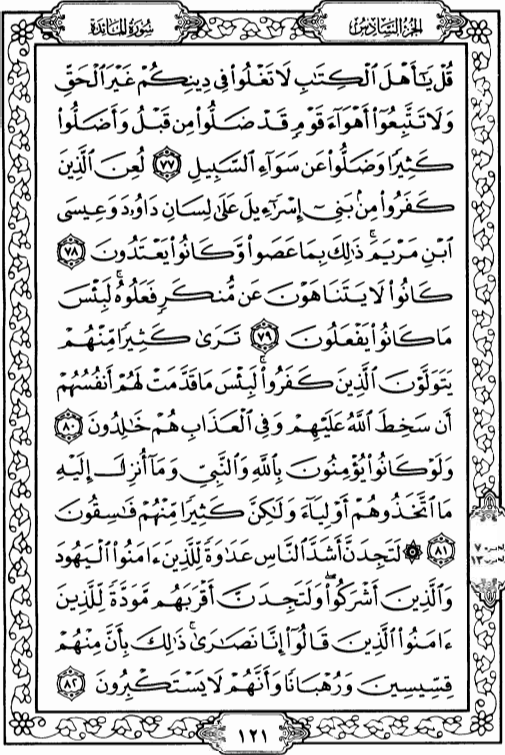 سُورَةُ المَائِدَة
الجُزْءُ السَّادِسُ
قُلْ يَٰٓأَهْلَ ٱلْكِتَٰبِ لَا تَغْلُوا۟ فِى دِينِكُمْ غَيْرَ ٱلْحَقِّ
وَلَا تَتَّبِعُوٓا۟ أَهْوَآءَ قَوْمٍ قَدْ ضَلُّوا۟ مِن قَبْلُ وَأَضَلُّوا۟
كَثِيرًا وَضَلُّوا۟ عَن سَوَآءِ ٱلسَّبِيلِ ٧٧ لُعِنَ ٱلَّذِينَ
كَفَرُوا۟ مِنۢ بَنِىٓ إِسْرَٰٓءِيلَ عَلَىٰ لِسَانِ دَاوُۥدَ وَعِيسَى
ٱبْنِ مَرْيَمَ ۚ ذَٰلِكَ بِمَا عَصَوا۟ وَّكَانُوا۟ يَعْتَدُونَ ٧٨
كَانُوا۟ لَا يَتَنَاهَوْنَ عَن مُّنكَرٍ فَعَلُوهُ ۚ لَبِئْسَ
مَا كَانُوا۟ يَفْعَلُونَ ٧٩ تَرَىٰ كَثِيرًا مِّنْهُمْ
يَتَوَلَّوْنَ ٱلَّذِينَ كَفَرُوا۟ ۚ لَبِئْسَ مَا قَدَّمَتْ لَهُمْ أَنفُسُهُمْ
أَن سَخِطَ ٱللَّهُ عَلَيْهِمْ وَفِى ٱلْعَذَابِ هُمْ خَٰلِدُونَ ٨٠
وَلَوْ كَانُوا۟ يُؤْمِنُونَ بِٱللَّهِ وَٱلنَّبِىِّ وَمَآ أُنزِلَ إِلَيْهِ
مَا ٱتَّخَذُوهُمْ أَوْلِيَآءَ وَلَٰكِنَّ كَثِيرًا مِّنْهُمْ فَٰسِقُونَ
٨١ ۞ لَتَجِدَنَّ أَشَدَّ ٱلنَّاسِ عَدَٰوَةً لِّلَّذِينَ ءَامَنُوا۟ ٱلْيَهُودَ
وَٱلَّذِينَ أَشْرَكُوا۟ ۖ وَلَتَجِدَنَّ أَقْرَبَهُم مَّوَدَّةً لِّلَّذِينَ
ءَامَنُوا۟ ٱلَّذِينَ قَالُوٓا۟ إِنَّا نَصَٰرَىٰ ۚ ذَٰلِكَ بِأَنَّ مِنْهُمْ
قِسِّيسِينَ وَرُهْبَانًا وَأَنَّهُمْ لَا يَسْتَكْبِرُونَ ٨٢
٧
١٣
١٢١